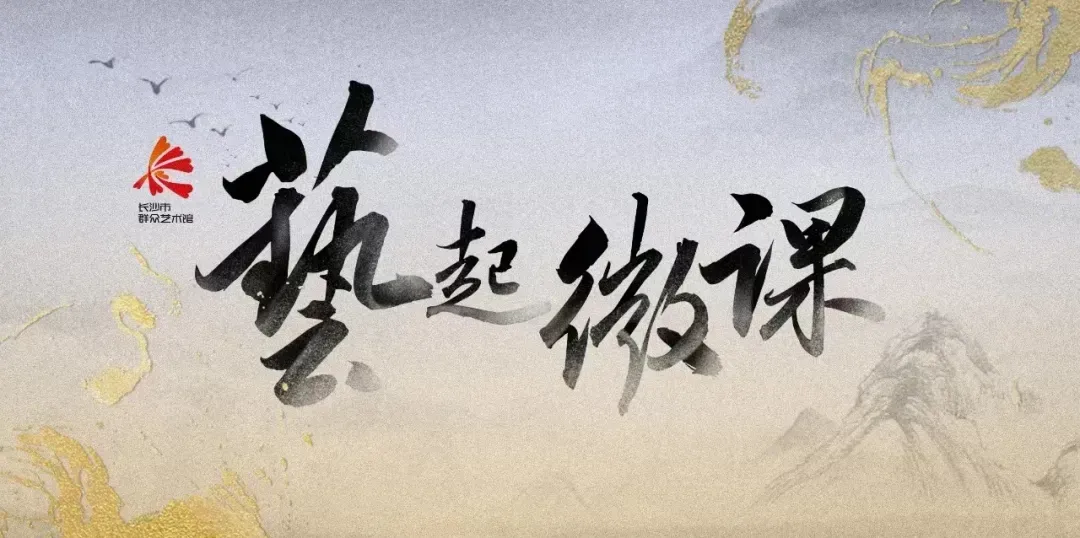 长沙市
群众艺术馆
藝起微课